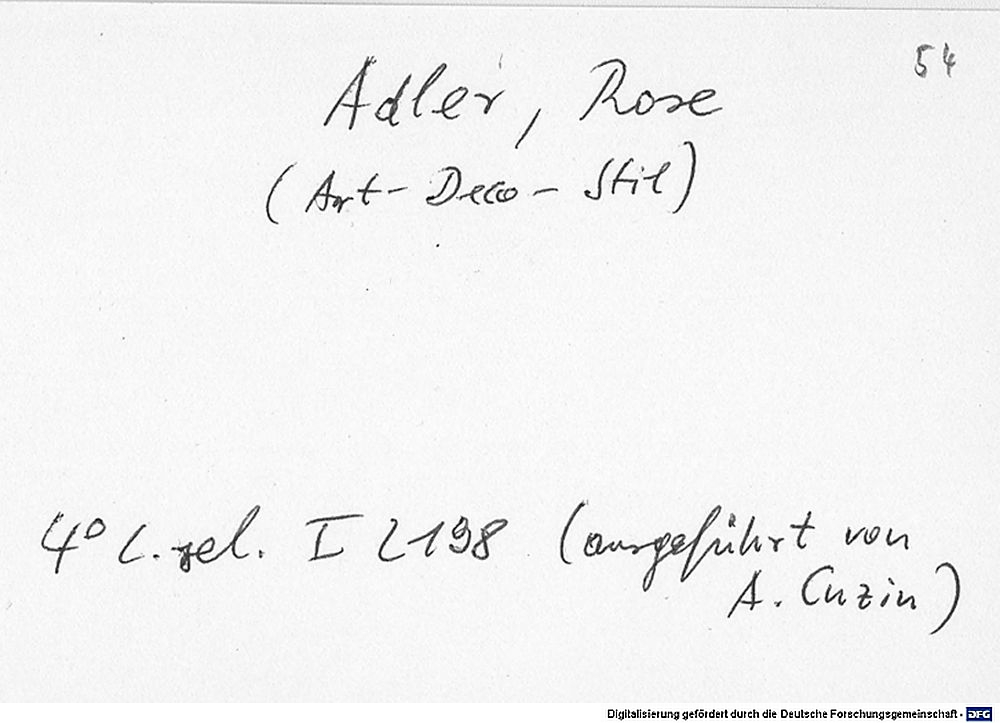 54
Adler, Rose
(Art-Deco-Stil)
4° L. sel. I 2198 (ausgeführt von
A. Cuzin)
Digitalisierung gefördert durch die Deutsche Forschungsgemeinschaft - DFG